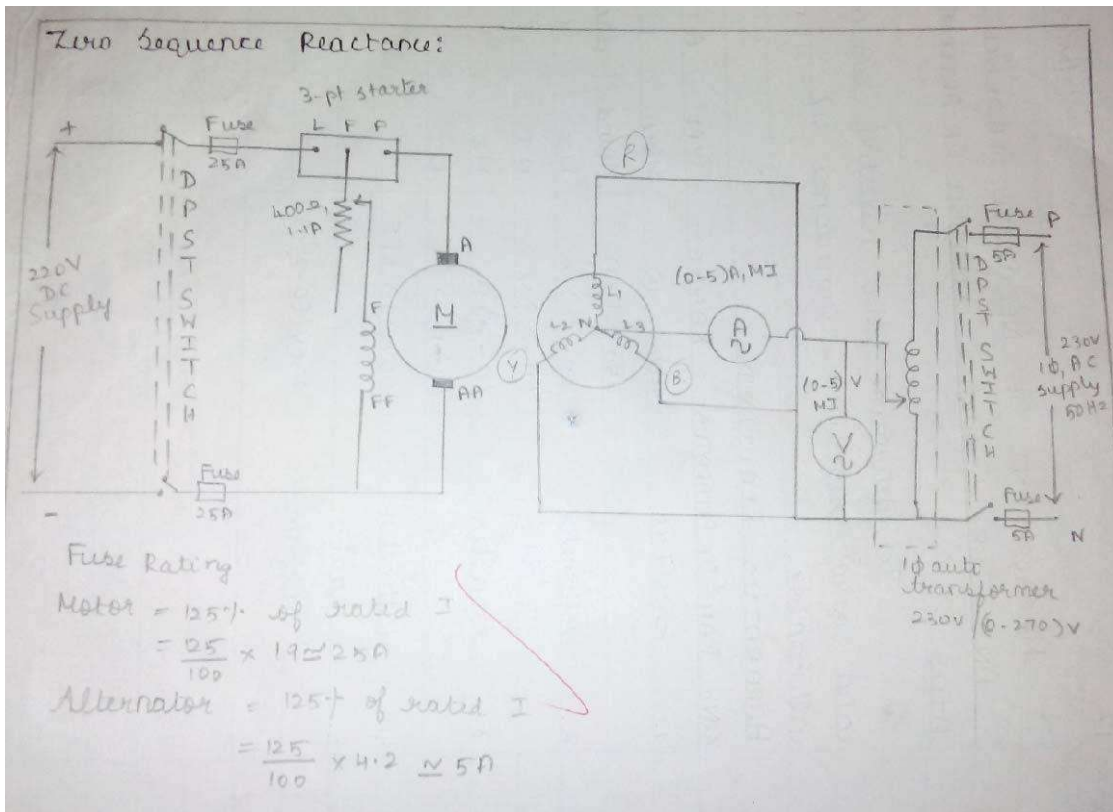 Zero Sequence Reactance:
3-pt starter
L F A
+
Fuse
25A
DPST SWITCH
400Ω,
1.1A
220V
DC
Supply
A
M
AA
F
FF
Fuse
25A
-
R
L1
L2 N L3
Y
B
(0-5)A, MI
A
(0-5) V
MI
V
Fuse P
5A
DPST SWITCH
230V
1ϕ, AC
supply
50Hz
Fuse
5A N
1ϕ auto
transformer
230V/(0-270)V
Fuse Rating
Motor = 125% of rated I
= 25/100 × 19 ≃ 25A
Alternator = 125% of rated I
= 125/100 × 4.2 ≃ 5A